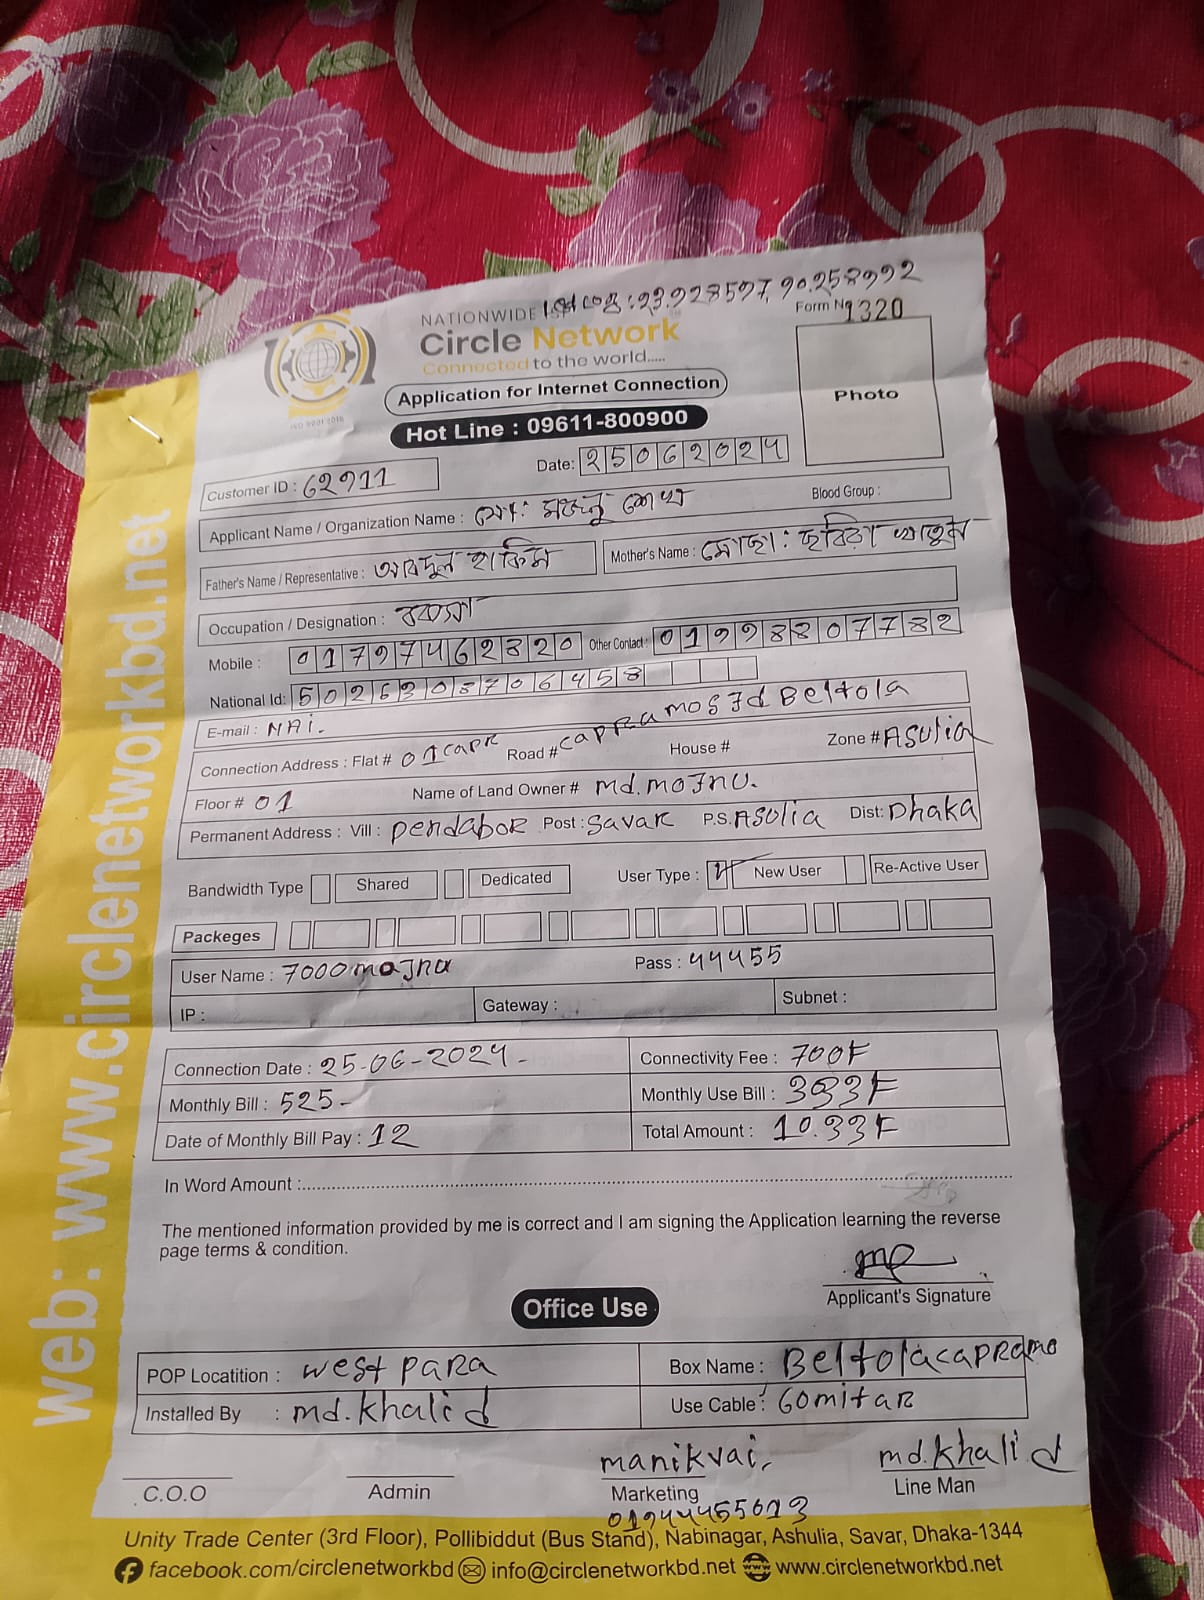 লোকেশন :23.928597, 90.258992
NATIONWIDE ISP
Form No 1320
Circle Network
Connected to the world.....
ISO 9001:2015
Application for Internet Connection
Photo
Hot Line : 09611-800900
Customer ID : 62911
Date: 25062024
Applicant Name / Organization Name : মো: মজনু শেখ
Blood Group :
Father's Name / Representative : আবদুল হাকিম
Mother's Name : মোছা: ছবিরা খাতুন
Occupation / Designation : ব্যবসা
Mobile : 01797462320 Other Contact: 01998807782
National Id: 5026308706458
E-mail : NAi.
Connection Address : Flat # 01capr Road # capramosJd Beltola House # Zone # ASulia
Floor # 01 Name of Land Owner # md.moJnu.
Permanent Address : Vill : pendaboR Post : SavaR P.S. ASulia Dist: Dhaka
Bandwidth Type Shared Dedicated User Type : New User Re-Active User
Packeges
User Name : 7000moJnu Pass : 44455
IP : Gateway : Subnet :
Connection Date : 25-06-2024- Connectivity Fee : 700F
Monthly Bill : 525- Monthly Use Bill : 333F
Date of Monthly Bill Pay : 12 Total Amount : 10.33F
In Word Amount :
The mentioned information provided by me is correct and I am signing the Application learning the reverse
page terms & condition.
Applicant's Signature
Office Use
POP Locatition : west paRa Box Name : Beltolacapramo
Installed By : md.khalid Use Cable : 60mitaR
manikvai, md.khalid
C.O.O Admin Marketing Line Man
01944455613
Unity Trade Center (3rd Floor), Pollibiddut (Bus Stand), Nabinagar, Ashulia, Savar, Dhaka-1344
facebook.com/circlenetworkbd info@circlenetworkbd.net www.circlenetworkbd.net
web: www.circlenetworkbd.net